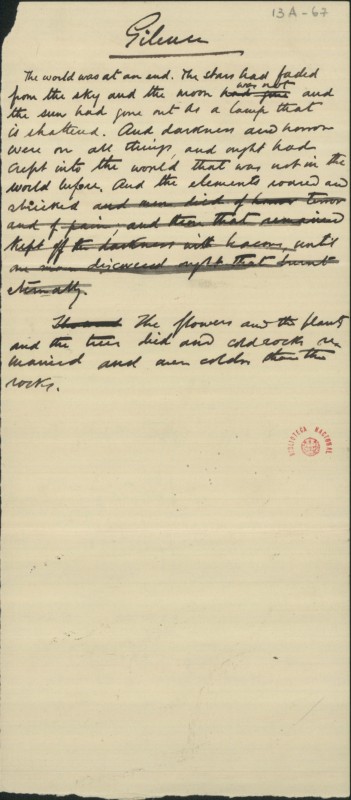 13A-67
Silence
The world was at an end. The stars had faded
from the sky and the moon had gone was not and
the sun had gone out as a lamp that
is shattered. And darkness and horror
were on all things, and ought had
crept into the world that was not in the
world before. And the elements roared and
shrieked and men died of horror terror
and of pain, and those that remained
kept off the darkness with beacons, until
one man discovered ought that burnt
eternally.
The flowers and the plants
and the trees died and cold rocks re-
mained and men colder than the
rocks.
BIBLIOTECA NACIONAL